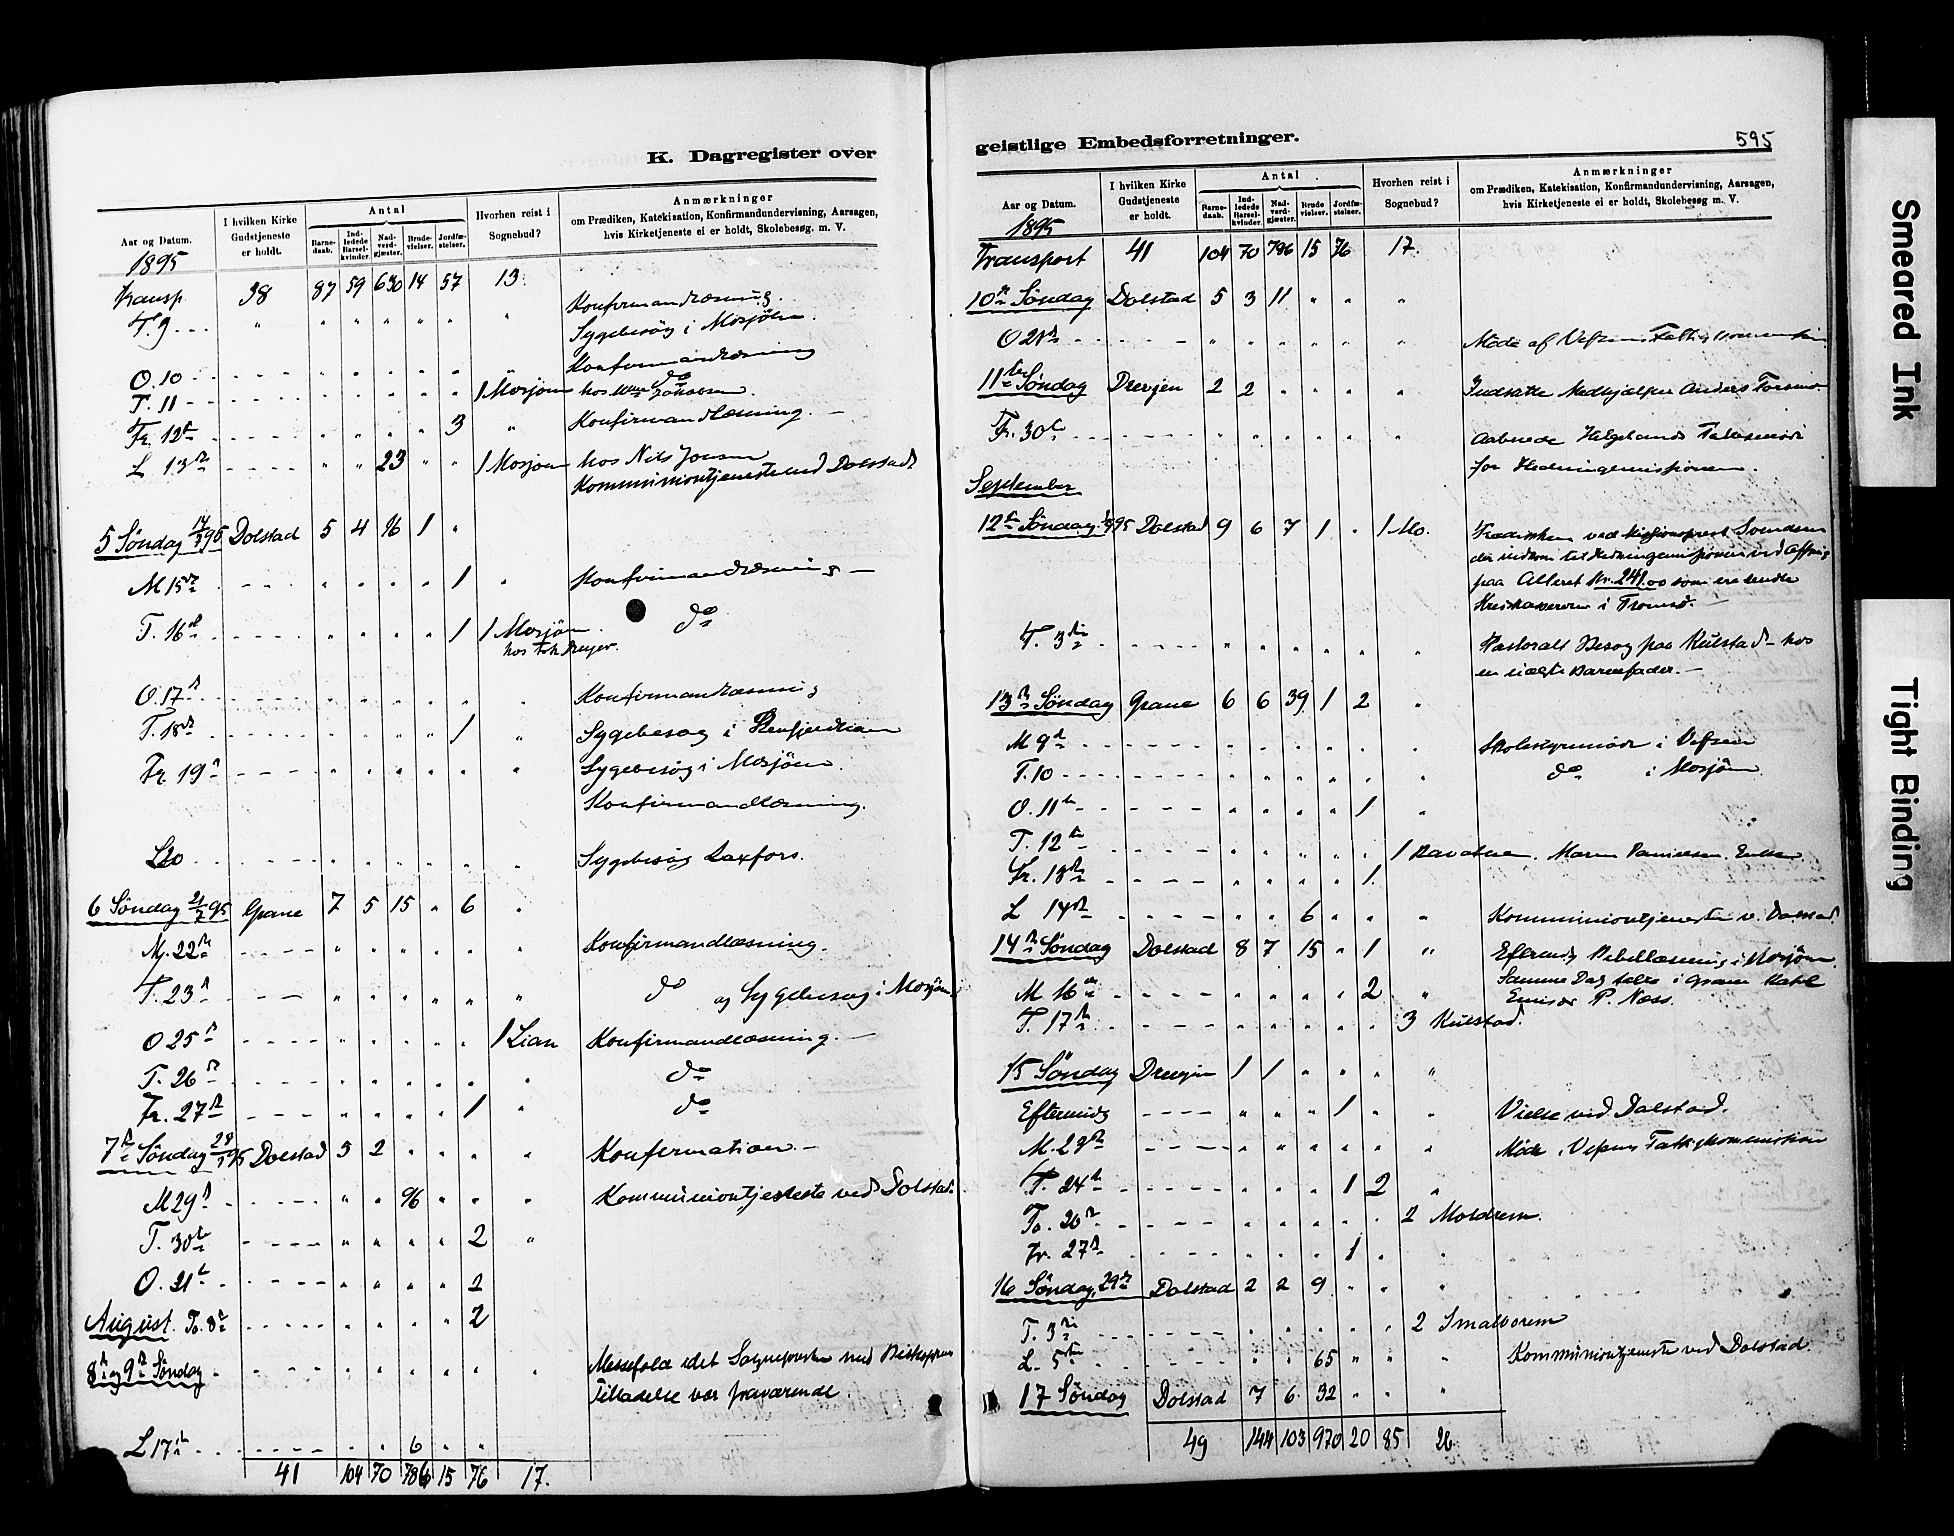 K. Dagregister over
Aar og Datum.
1895
I hvilken Kirke Gudstjeneste er holdt.
Antal
Barne-daab.
Ind-ledede Barsel-kvinder.
Nad-verd-gjæster.
Brude-vielser.
Jordfæ-stelser.
Hvorhen reist i Sognebud?
Anmærkninger
om Prædiken, Katekisation, Konfirmandundervisning, Aarsagen,
hvis Kirketjeneste ei er holdt, Skolebesøg. m. V.
Transp. 38 87 59 630 14 57 13.
T. 9 - - - " " " " " " " Konfirmandlæsning.
Sygebesøg i Mosjøen.
O. 10 - - - - Konfirmandlæsning
T. 11 - - - - 1 Mosjøen hos
do
Fr. 12te - - - - 3 " Konfirmandlæsning. -
L 13de - - - - " " 23 " " 1 Mosjøen hos Nils Jonsen
Kommuniontjeneste ved Dolstad
5 Søndag 14/7 95 Dolstad 5 4 16 1 "
M 15de - - - - 1 " Konfirmandlæsning -
T. 16de - - - - 1 1 Mosjøen. do
hos
O. 17de - - - - Konfirmandlæsning
T. 18de - - - - 1 " Sygebesøg i
Fr 19de - - - - " Sygebesøg i Mosjøen
Konfirmandlæsning.
L20 - - - - Sygebesøg Laxfors.
6 Søndag 21/7 95 Grane 7 5 15 " 6 "
M. 22de - - - - Konfirmandlæsning.
T. 23de - - - - do og Sygebesøg i Mosjøen.
O 25de - - - - 1 Lian Konfirmandlæsning. -
T. 26de - - - - do
Fr. 27de - - - - 1 " do
7de Søndag 28/7 95 Dolstad 5 2 " " " " Konfirmation. -
M 29de - - " " 96 " " " Kommuniontjeneste ved Dolstad.
T. 30te - - - - 2 "
O. 31te - - - - 2
August. To. 8de - - - - 2
8de og 9de Søndag - Messefald idet Sognepresten med Biskoppens
Tilladelse var fraværende.
L 17de - - - - 6 " "
41 104 70 786 15 76 17.
geistlige Embedsforretninger.
595
Aar og Datum.
1895
I hvilken Kirke Gudstjeneste er holdt.
Antal.
Barne-daab.
Ind-ledede Barsel-kvinder.
Nad-verd-gjæster.
Brude vielser.
Jordfæ-stelser.
Hvorhen reist i Sognebud?
Anmærkninger
om Prædiken, Katekisation, Konfirmandundervisning, Aarsagen,
hvis Kirketjeneste ei er holdt, Skolebesøg m. V.
Transport 41 104 70 786 15 76 17.
10de Søndag Dolstad 5 3 11 " " "
O 21de - - - - Møde af Vefsens Fattigkommission
11te Søndag Drevjen 2 2 " " " " Indsatte Medhjælper Anders
Fr. 30te - - - - Aabnede Helgelands
for Hedningemissionen.
September
12te Søndag 1/9 95 Dolstad 9 6 7 1 " 1 Mo. Prædiken ved Missionsprest Svendsen
der indkom til Hedningemissionen ved Offring
paa Alteret Kr. 241.00 som ere sendte
Kredskassereren i Tromsø. -
T. 3die - - - - Pastoralt Besøg paa Kulstad - hos
en uægte Barnefader. -
13de Søndag Grane 6 6 39 1 2 "
M 9de - - - - Skolestyremøde i Vefsen
T. 10 - - - - do i Mosjøen.
O. 11te - - - - 1 "
T. 12te - - - - 1 Maren Danielsen. Enke
Fr. 13de - - - - 1.
L 14de - - - - 6 " " " Kommuniontjeneste v. Dolstad.
14de Søndag Dolstad 8 7 15 " 1 " Eftermidg Bibellæsning i Mosjøen.
Samme Dag talte i Grane Kapel
Emissær P. Næss.
M 16de - - - - 2 "
T. 17de - - - - 3 Kulstad.
15 Søndag Drevjen 1 1 " " " "
Eftermidg - - - - " " " 1 " " Vielse ved Dolstad.
M. 23de - - - - Møde i Vefsens Fattigkommission
T. 24de - - - - 1 2 "
To. 26de - - - - 2 Moldrem.
Fr. 27de - - - - 1 "
16 Søndag, 29de Dolstad 2 2 9 " " "
T. 3die - - - - 2 Smalvorem
L. 5te - - - - " " 65 " " " Kommuniontjeneste ved Dolstad.
17 Søndag Dolstad 7 6 32 " " "
49 144 103 970 20 85 26
Smeared Ink
Tight Binding